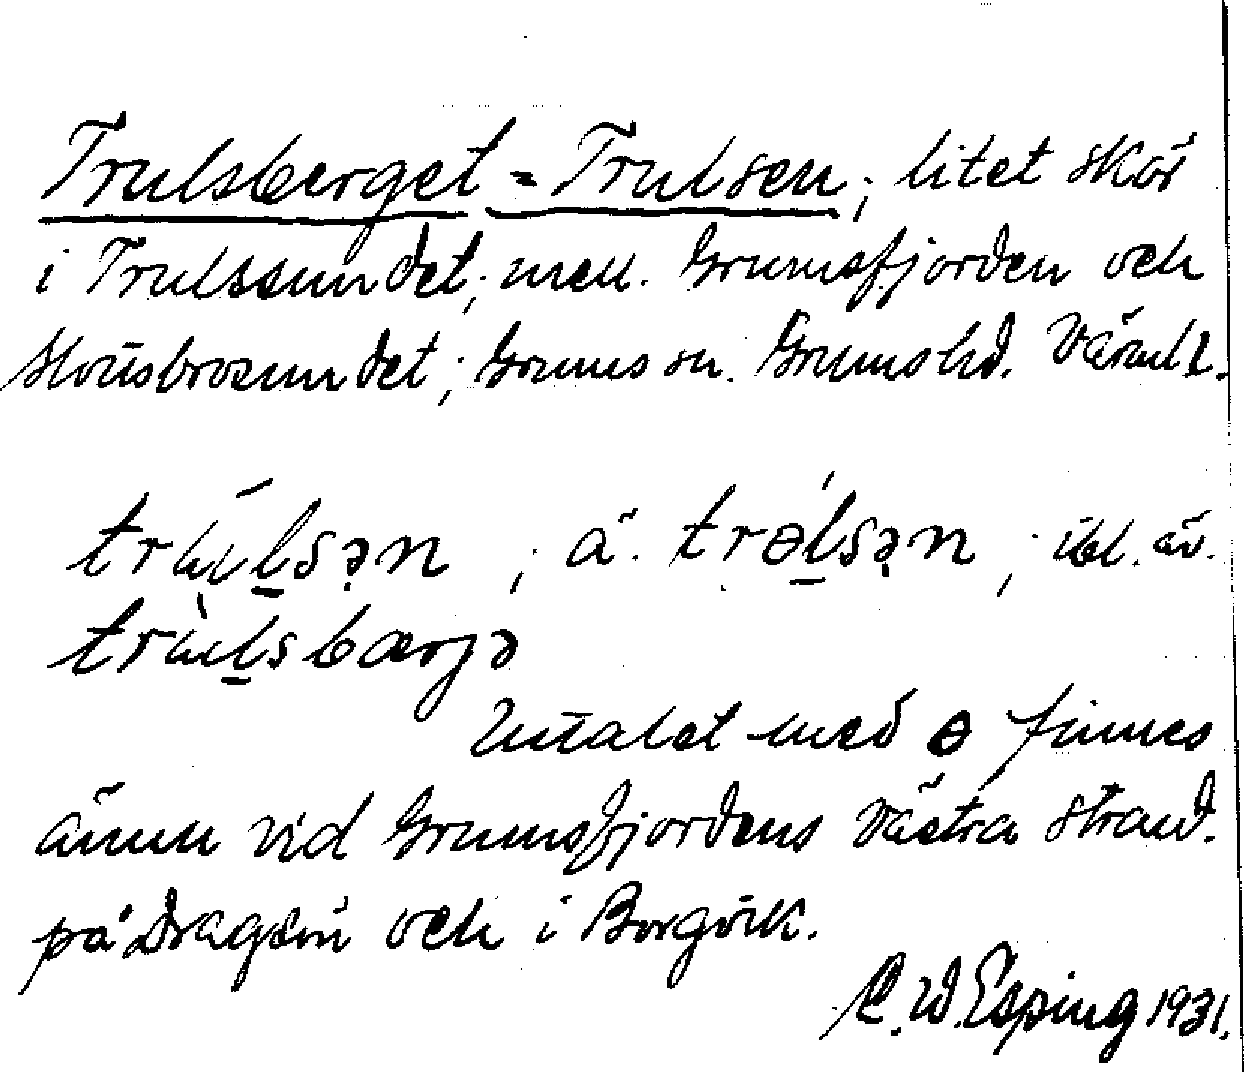 Trulsberget = Trulsen; litet skär
i Trulssundet; mell. Grumsfjorden och
Slottsbrosundet; Grums sn. Grums hd. Värml.
trulsən, ä. trɵlsən, ibl. äv.
trulsbærjə
Uttalet med ɵ finnes
ännu vid Grumsfjordens västra strand.
på Dragsön och i Borgvik.
C. W. Esping 1931.